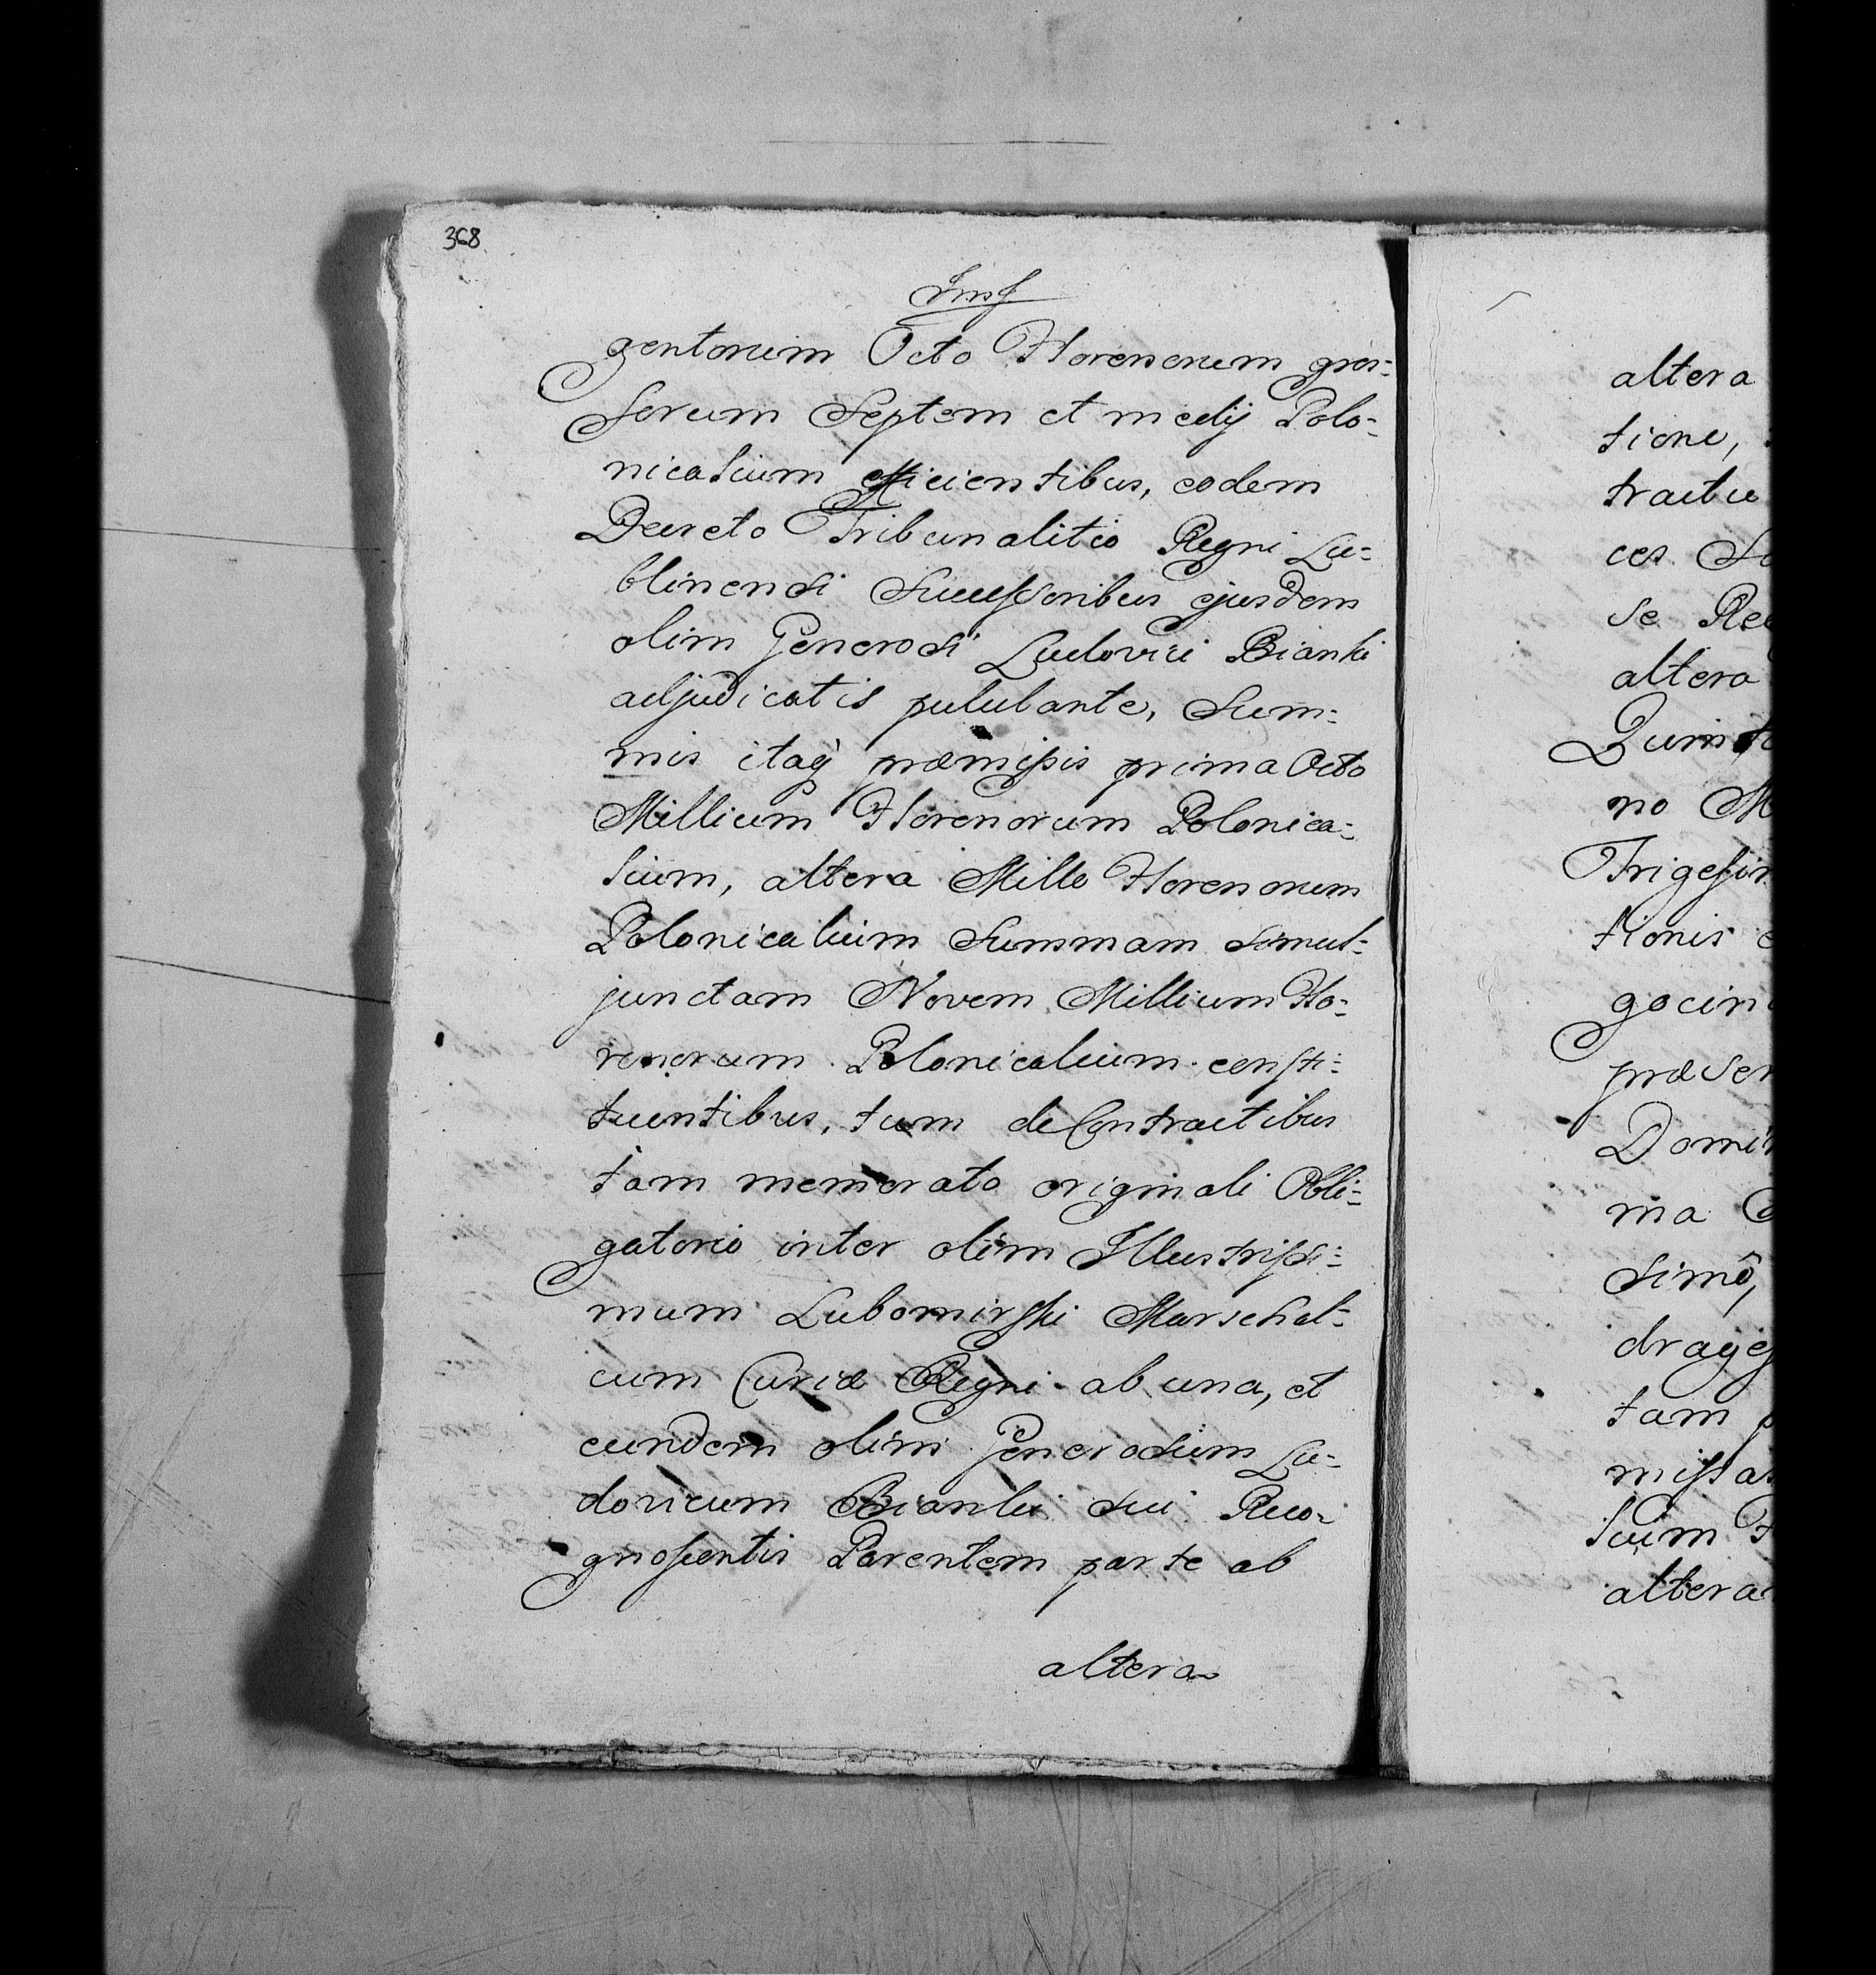 368
gentorum Octo Florenorum gros=
sorum Septem et medij Polo=
nicalium efficientibus, eodem
Decreto Tribunalitio Regni Lu=
blinensi Successoribus ejusdem
olim Generosi Ludovici Bianki
adjudicatis pululante, Sum=
mis itaq præmissis prima Octo
Millium Florenorum Polonica=
lium, altera Mille Florenorum
Polonicalium Summam simul=
junctam Novem Millium Flo=
renorum Polonicalium consti=
tuentibus, tum de Contractibus
tam memorato originali Obli=
gatorio inter olim Illustrissi=
mum Lubomirski Marschal=
cum Curiæ Regni ab una, et
eundem olim Generosum Lu=
dovicum Bianki sui Reco=
gnoscentis Parentem parte ab
altera
altera
tione,
tractu
ces
se
altera
no
Trigesim
tionis
gocin
præsen
Domin
ma
simô,
drages
tam
missas
lium
altera